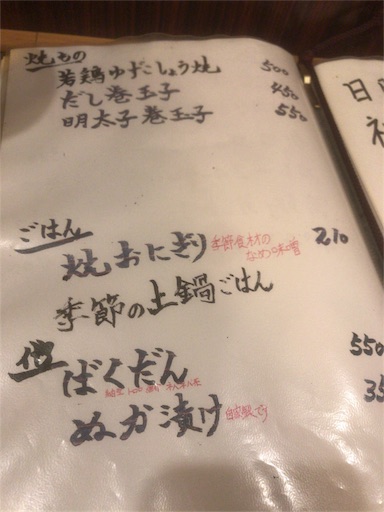 焼もの
若鶏ゆずこしょう焼 500
だし巻玉子 450
明太子巻玉子 550
ごはん
焼おにぎり 季節食材の なめ味噌 210
季節の土鍋ごはん
他
ばくだん 550
ぬか漬け 自家製です 35
日